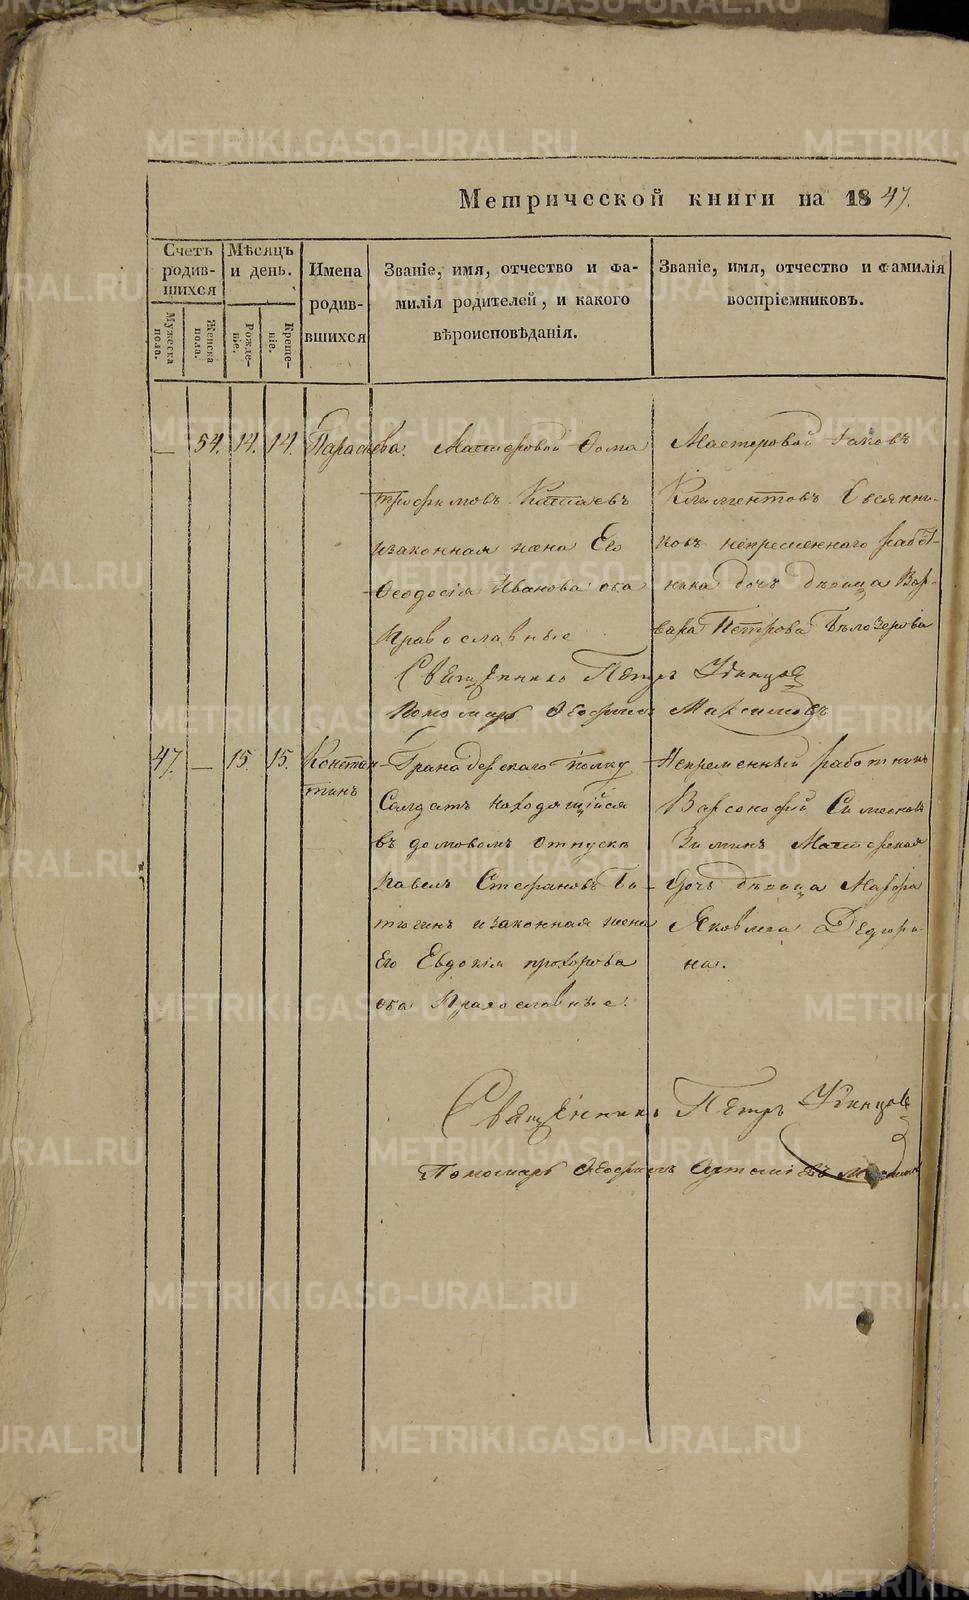 Метрической книги на 1847.
Счетъ родившихся
Мѣсяцъ и день.
Имена родившихся
Званіе, имя, отчество и фамилія родителей, и какого вѣроисповѣданія.
Званіе, имя, отчество и фамилія воспріемниковъ.
Мужеска пола.
Женска пола.
Рожденіе.
Крещеніе.
— 54. 14. 14. Параскева
Мастеровой Фома
Трофимовъ
изаконная жена Его
Феодосія Иванова оба
Православные
Мастеровой Іаковъ
Климентовъ Овсянни-
ковъ непременнаго работ-
ника дочь дѣвица Вар-
вара Петрова Бѣлозерова
Священникъ Петръ Удинцов
Пономарь Феофилъ Максимовъ
47. — 15. 15. Констан-
тинъ
Гранадерскаго полку
Салдатъ находящійся
въ домовомъ отпускѣ
Павелъ Стефановъ
изаконная жена
Его Евдокія прохорова
оба Православные.
Непременный работникъ
Варсонофій
Зиминъ Мастерская
дочь дѣвица Марфа
Яковлева
на.
Священникъ Петръ Удинцов
Пономарь Феофилъ
METRIKI.GASO-URAL.RU